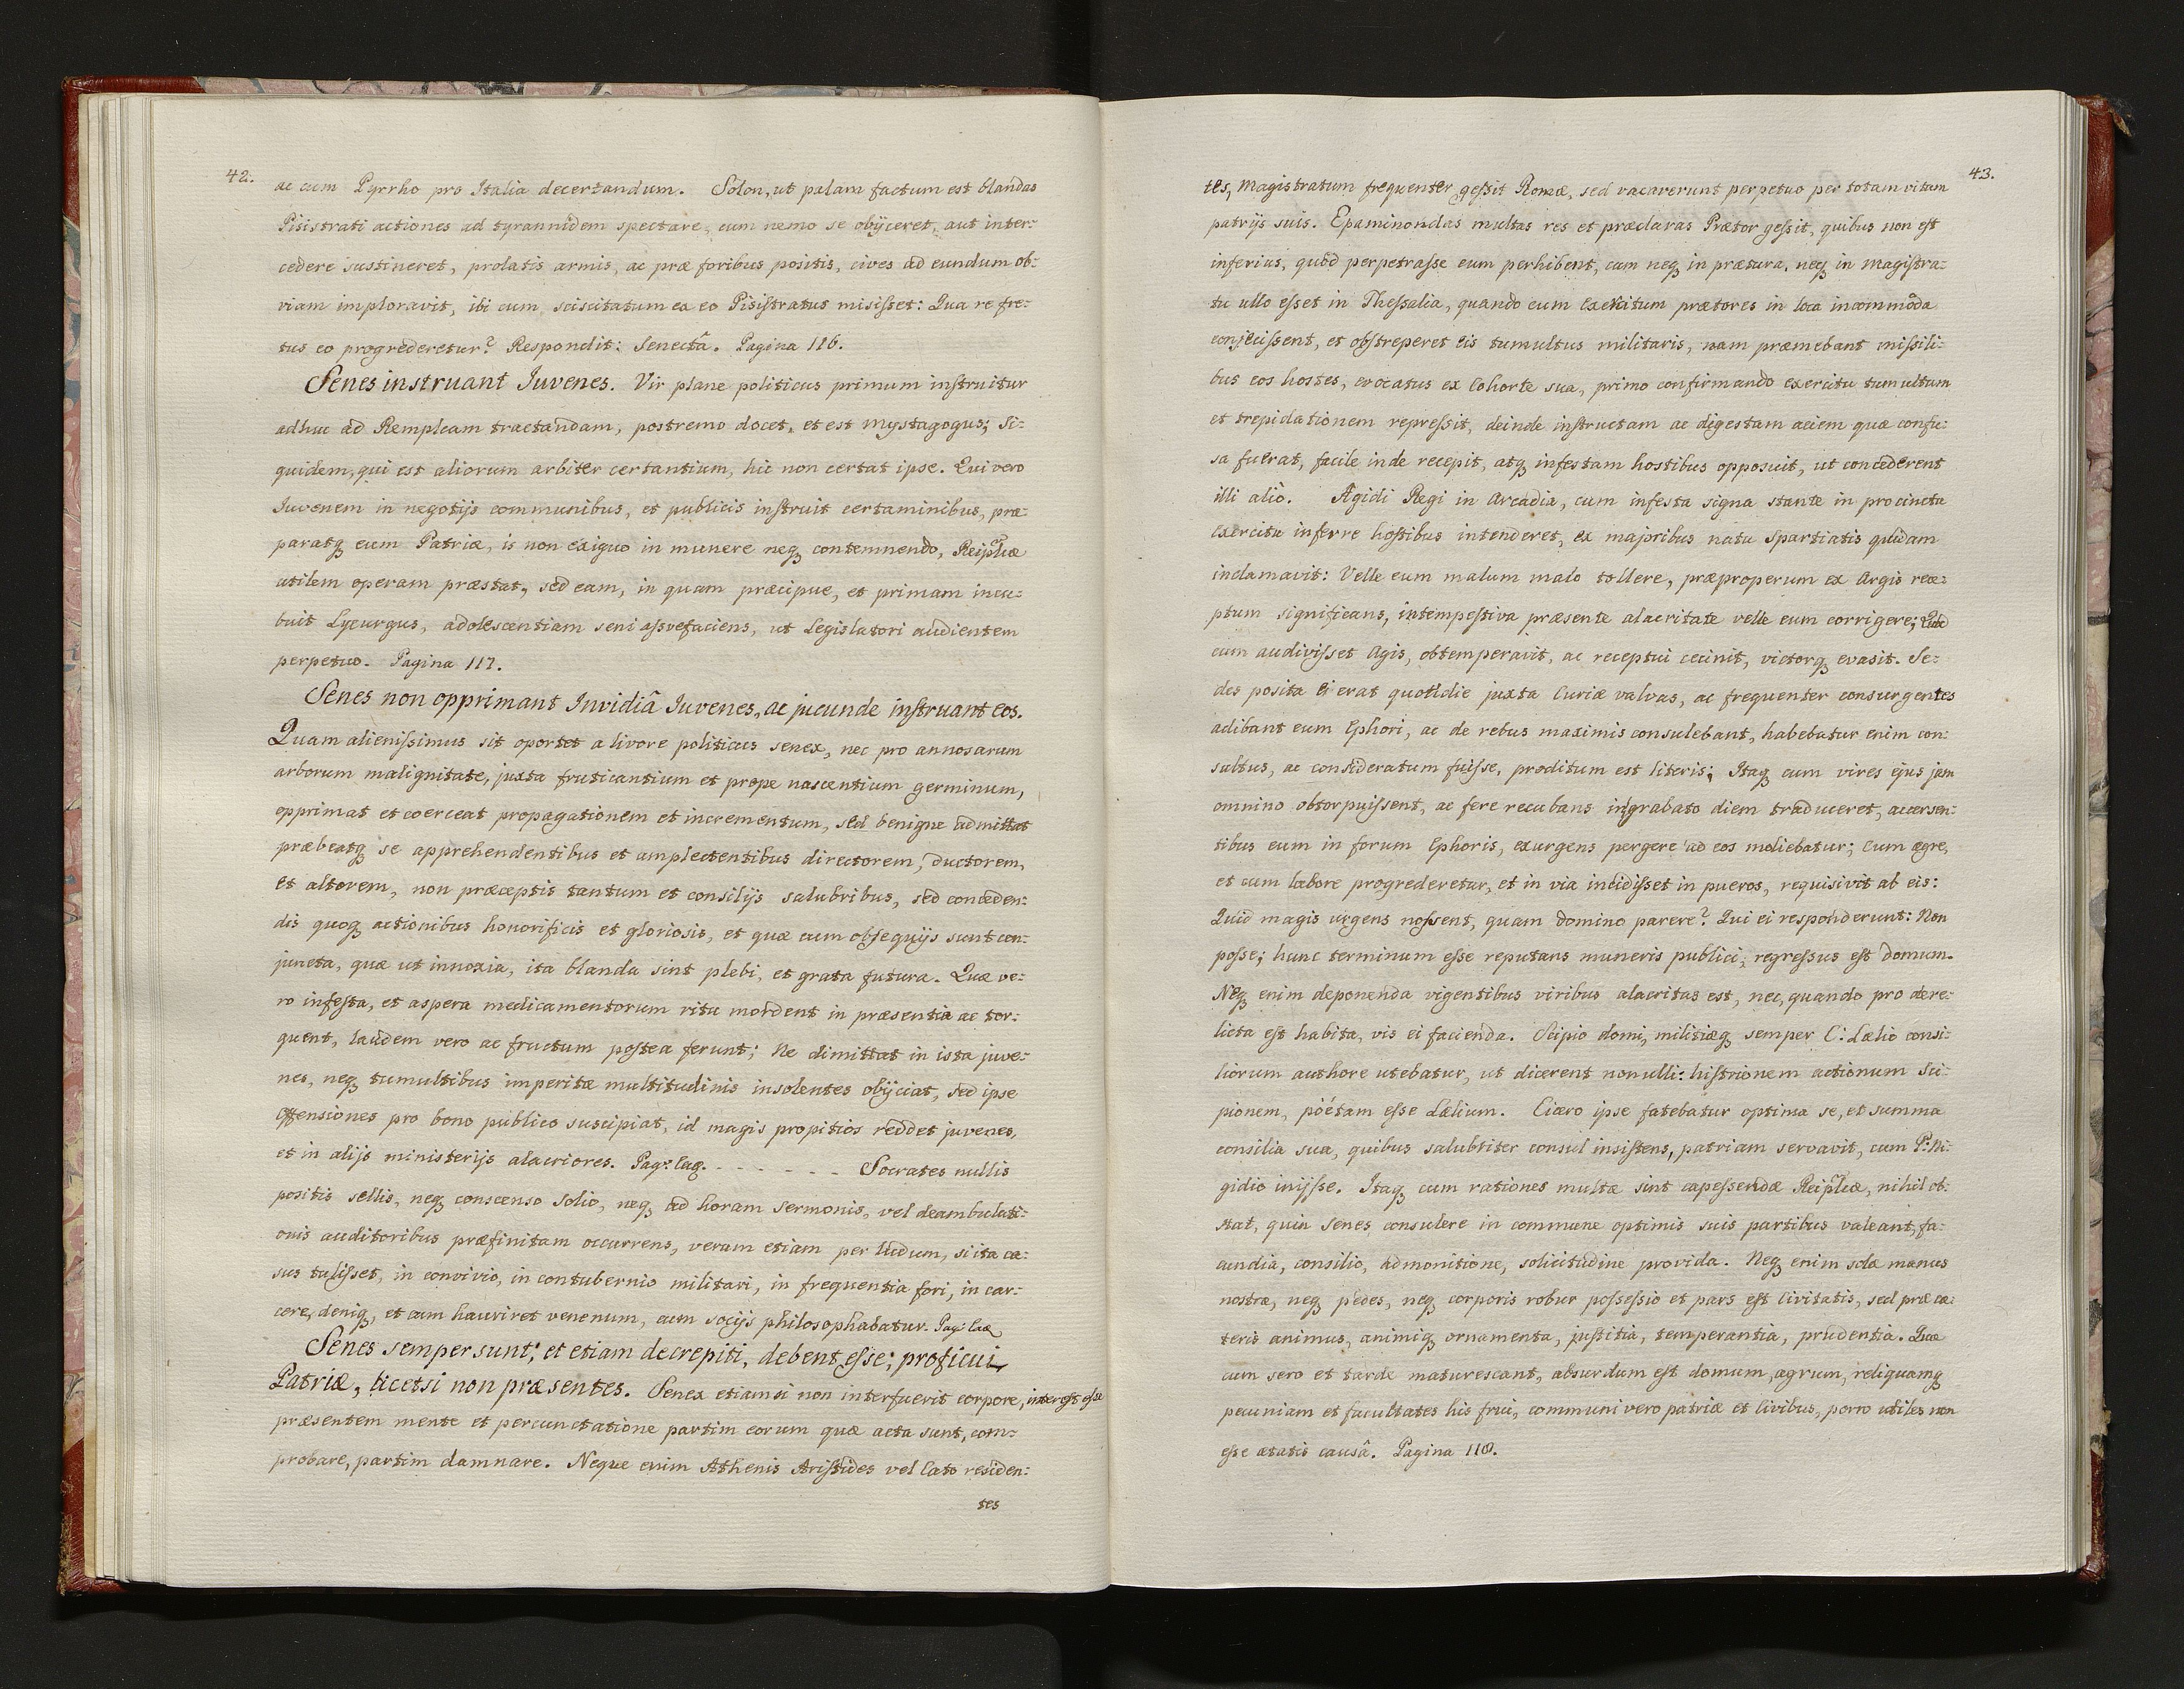 42.
ac cum Pyrrho pro Italia decertandum. Solon, ut palam factum est blandas
Pisistrati actiones ad tyrannidem spectare, cum nemo se obijceret, aut inter:
cedere sustineret, prolatis armis, ac præ foribus positis, cives ad eundum ob:
viam imploravit, ibi cum sciscitatum ex eo Pisistratus misisset: Qua re fre:
tus eo progrederetur? Respondit: Senectâ. Pagina 116.
Senes instruant Iuvenes. Vir plane politicus primum instruitur
adhuc ad Remplcam tractandam, postremo docet, et est Mystagogus; Si:
quidem, qui est aliorum arbiter certantium, hic non certat ipse. Qui vero
Iuvenem in negotijs communibus, et publicis instruit certaminibus, præ:
paratq eum Patriæ, is non exiguo in munere neq contemnendo, Reiplcæ
utilem operam præstat, sed eam, in quam præcipue, et primam incu:
buit Lycurgus, adolescentiam seni assvefaciens, ut Legislatori audientem
perpetuo. Pagina 117.
Senes non opprimant Invidiâ Iuvenes, ac jucunde instruant eos.
Quam alienissimus sit oportet a livore politicus senex, nec pro annosarum
arborum malignitate, juxta fruticantium et prope nascentium germinum,
opprimat et coerceat propagationem et incrementum, sed benigne admittat
præbeatq se apprehendentibus et amplectentibus directorem, ductorem,
et altorem, non præceptis tantum et consilijs salubribus, sed conceden:
dis quoq actionibus honorificis et gloriosis, et quæ cum obsequijs sunt con:
juncta, quæ ut innoxia, ita blanda sint plebi, et grata futura. Quæ ve:
ro infesta, et aspera medicamentorum ritu mordent in præsentia ac tor:
quent, laudem vero ac fructum postea ferunt; Ne dimittat in ista juve:
nes, neq tumultibus imperitæ multitudinis insolentes obijciat, sed ipse
offensiones pro bono publico suscipiat, id magis propitios reddet juvenes,
et in alijs ministerijs alacriores. Pag: eaq. - - - - - - - Socrates nullis
positis sellis, neq conscenso solio, neq ad horam sermonis, vel deambulati:
onis auditoribus præfinitam occurrens, verum etiam per ludum, si ita ca:
sus tulisset, in convivio, in contubernio militari, in frequentia fori, in car:
cere, deniq, et cum hauriret venenum, cum socijs philosophabatur. Pag: eaq
Senes semper sunt, et etiam decrepiti, debent esse, proficui
Patriæ, licetsi non præsentes. Senex etiamsi non interfuerit corpore, interest esse
præsentem mente et percunctatione partim eorum quæ acta sunt, com:
probare, partim damnare. Neque enim Athenis Aristides vel Cato residen:
tes
43.
tes, Magistratum frequenter gessit Romæ, sed vacaverunt perpetuo per totam vitam
patrijs suis. Epaminondas multas res et præclaras Prætor gessit, quibus non est
inferius, quòd perpetrasse eum perhibent, cum neq in prætura, neq in Magistra:
tu ullo esset in Thessalia, quando eum Exercitum prætores in loca incommoda
conjecissent, et obstreperet eis tumultus militaris, nam præmebant missili:
bus eos hostes, evocatus ex Cohorte sua, primo confirmando exercitu tumultum
et trepidationem repressit, deinde instructam ac digestam aciem quæ confu:
sa fuerat, facile inde recepit, atq infestam hostibus opposuit, ut concederent
illi aliò. Agidi Regi in Arcadia, cum infesta signa stante in procinctu
Exercitu inferre hostibus intenderet, ex majoribus natu Spartiatis quidam
inclamavit: Velle eum malum malo tollere, præproperum ex Argis rece:
ptum significans, intempestiva præsente alacritate velle eum corrigere; Quod
cum audivisset Agis, obtemperavit, ac receptui cecinit, victorq evasit. Se:
des posita ei erat quotidie juxta Curiæ valvas, ac frequenter consurgentes
adibant eum Ephori, ac de rebus maximis consulebant, habebatur enim con:
sultus, ac consideratum fuisse, proditum est literis; Itaq cum vires ejus jam
omnino obtorpuissent, ac fere recubans in grabato diem traduceret, accersen:
tibus eum in forum Ephoris, exurgens pergere ad eos moliebatur; Cum ægre,
et cum labore progrederetur, et in via incidisset in pueros, requisivit ab eis:
Quid magis urgens nossent, quam domino parere? Qui ei responderunt: Non
posse; hunc terminum esse reputans muneris publici, regressus est domum.
Neq enim deponenda vigentibus viribus alacritas est, nec, quando pro dere:
licta est habita, vis ei facienda. Scipio domi, militiæq semper C: Lælio consi:
liorum authore utebatur, ut dicerent nonulli: histrionem actionum Sci:
pionem, poétam esse Lælium. Cicero ipse fatebatur optima se, et summa
consilia sua, quibus salubriter consul insistens, patriam servavit, cum P: Ni:
gidio inijsse. Itaq cum rationes multæ sint capessendæ Reiplcæ, nihil ob:
stat, quin Senes consulere in commune optimis suis partibus valeant, fa:
cundia, consilio, admonitione, solicitudine provida. Neq enim solæ manus
nostræ, neq pedes, neq corporis robur possessio et pars est Civitatis, sed præ cæ:
teris animus, animiq ornamenta, justitia, temperantia, prudentia. Quæ
cum sero et tarde maturescant, absurdum est domum, agrum, reliquamq
pecuniam et facultates his frui, communi vero patriæ et Civibus, porro utiles non
esse ætatis causâ. Pagina 118.